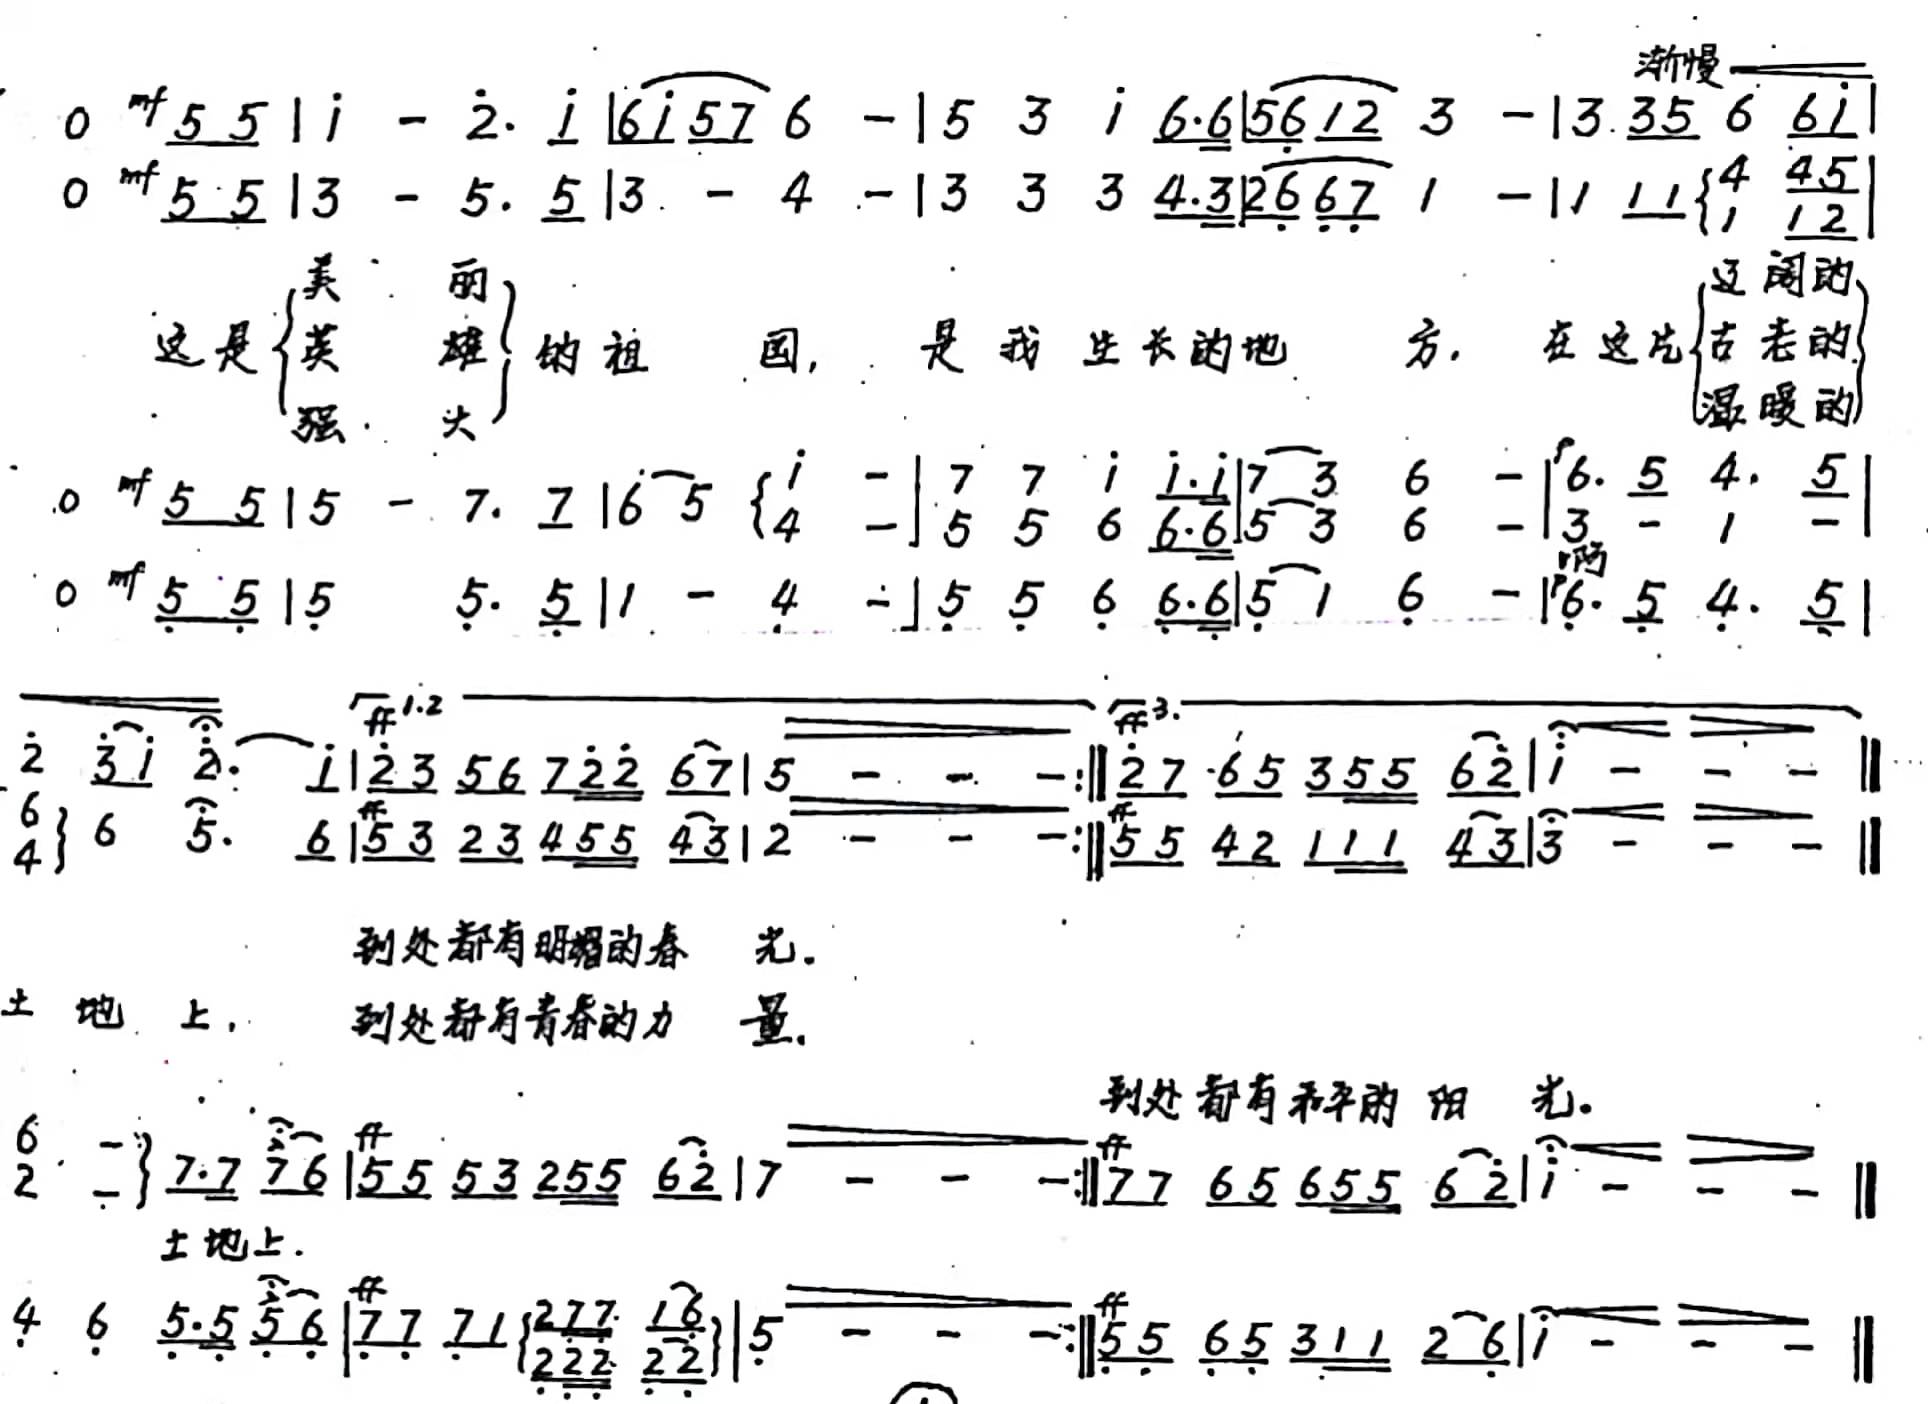 渐慢
0 mf 5 5 | i - 2̇. i | 6 i 5 7 6 - | 5 3 i 6·6 | 5 6̣ 1 2 3 - | 3. 3 5 6 6 i |
0 mf 5 5 | 3 - 5. 5 | 3 - 4 - | 3 3 3 4.3 | 2 6̣ 6̣ 7̣ 1 - | 1 1 1 { 4 4 5 |
1 1 2
美 丽 辽 阔 的
这 是 英 雄 的 祖 国, 是 我 生 长 的 地 方. 在 这 片 古 老 的
强 大 温 暖 的
0 mf 5 5 | 5 - 7. 7 | 6 5 { i - | 7 7 i i.i | 7 3 6 - | p 6. 5 4. 5 |
4 - | 5 5 6 6.6 | 5 3 6 - | 3 - 1 - |
啊
0 mf 5̣ 5̣ | 5̣ 5̣. 5̣ | 1 - 4̣ - | 5̣ 5̣ 6̣ 6̣.6̣ | 5̣ 1 6̣ - | p 6̣. 5̣ 4̣. 5̣ |
ff 1.2 ff 3.
2̇ 3̇ i 2̇. i | 2̇ 3 5 6 7 2̇ 2̇ 6 7 | 5 - - - :‖ 2̇ 7 6 5 3 5 5 6 2̇ | i - - - ‖
6 } 6 5. 6 | ff 5 3 2 3 4 5 5 4 3 | 2 - - - :‖ ff 5 5 4 2 1 1 1 4 3 | 3 - - - ‖
4
到处都有明媚的春 光.
土 地 上. 到处都有青春的力 量.
到处都有和平的 阳 光.
6 - } 7.7 7 6 | ff 5 5 5 3 2 5 5 6 2̇ | 7 - - - :‖ ff 7 7 6 5 6 5 5 6 2̇ | i - - - ‖
2 -
土 地 上.
4̣ 6̣ 5̣.5̣ 5̣ 6̣ | ff 7̣ 7̣ 7̣ 1 { 2 7̣ 7̣ 1 6̣ } | 5̣ - - - :‖ ff 5̣ 5̣ 6̣ 5̣ 3 1 1 2 6̣ | i - - - ‖
2̣ 2̣ 2̣ 2̣ 2̣